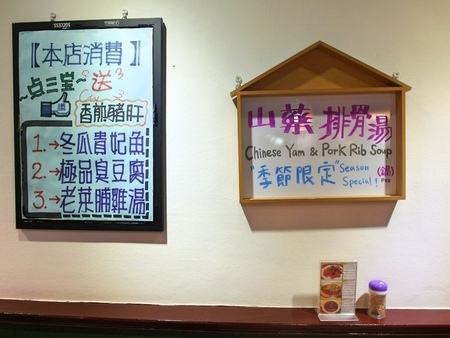 【本店消費】
~点三宝~送
香煎豬肝
1.→冬瓜貴妃魚
2.→極品臭豆腐
3.→老菜脯雞湯
山藥排骨湯
Chinese Yam & Pork Rib Soup
"季節限定" Season Special! (鍋)